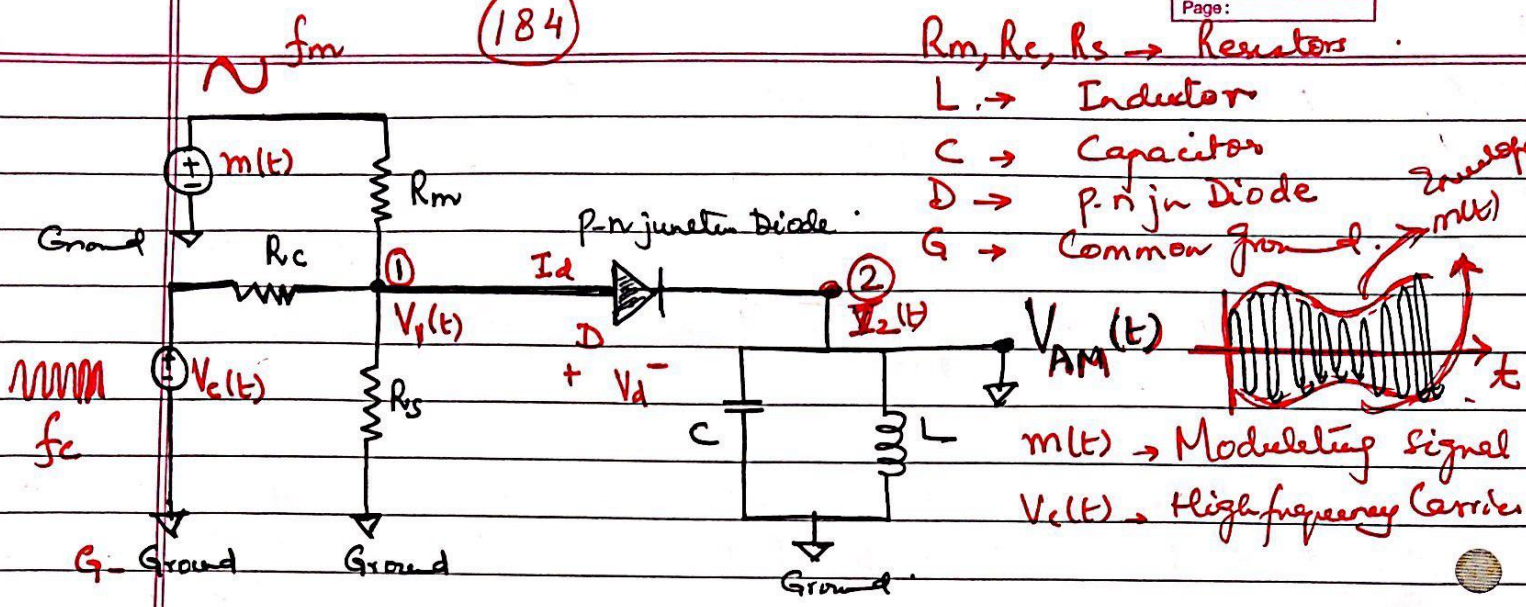 Page:
(184)
fm
Rm, Rc, Rs → Resistors
L → Inductor
C → Capacitor
D → p-n jn Diode
G → Common ground.
m(t)
Rm
Ground
Rc
1
V1(t)
Id
p-n junction Diode
2
V2(t)
D
+ Vd -
VAM(t)
Envelope
m(t)
t
Vc(t)
fc
Rs
C
L
m(t) → Modulating Signal
Vc(t) → High frequency Carrier
G- Ground
Ground
Ground